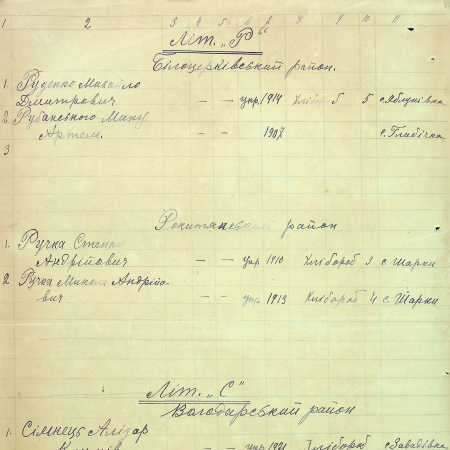 1 2 3 4 5 6 7 8 9 10 11
Літ. „Р"
Білоцерківський район.
1. Руденко Михайло
Дмитрович — — укр. 1914 Хлібороб 5 с. Яблунівка
2 Рубанського Мину
Артем. — — 1907 с. Глибічка
3
Рокитнянський район
1. Ручка Степан
Андрійович — — укр 1910 Хлібороб 3 с. Шарки
2 Ручка Микола Андрійо-
вич — — укр. 1913 Хлібороб 4 с. Шарки
Літ. „С"
Володарський район
1. Сімнець
— — укр 1921 Хлібороб с. Завадівка